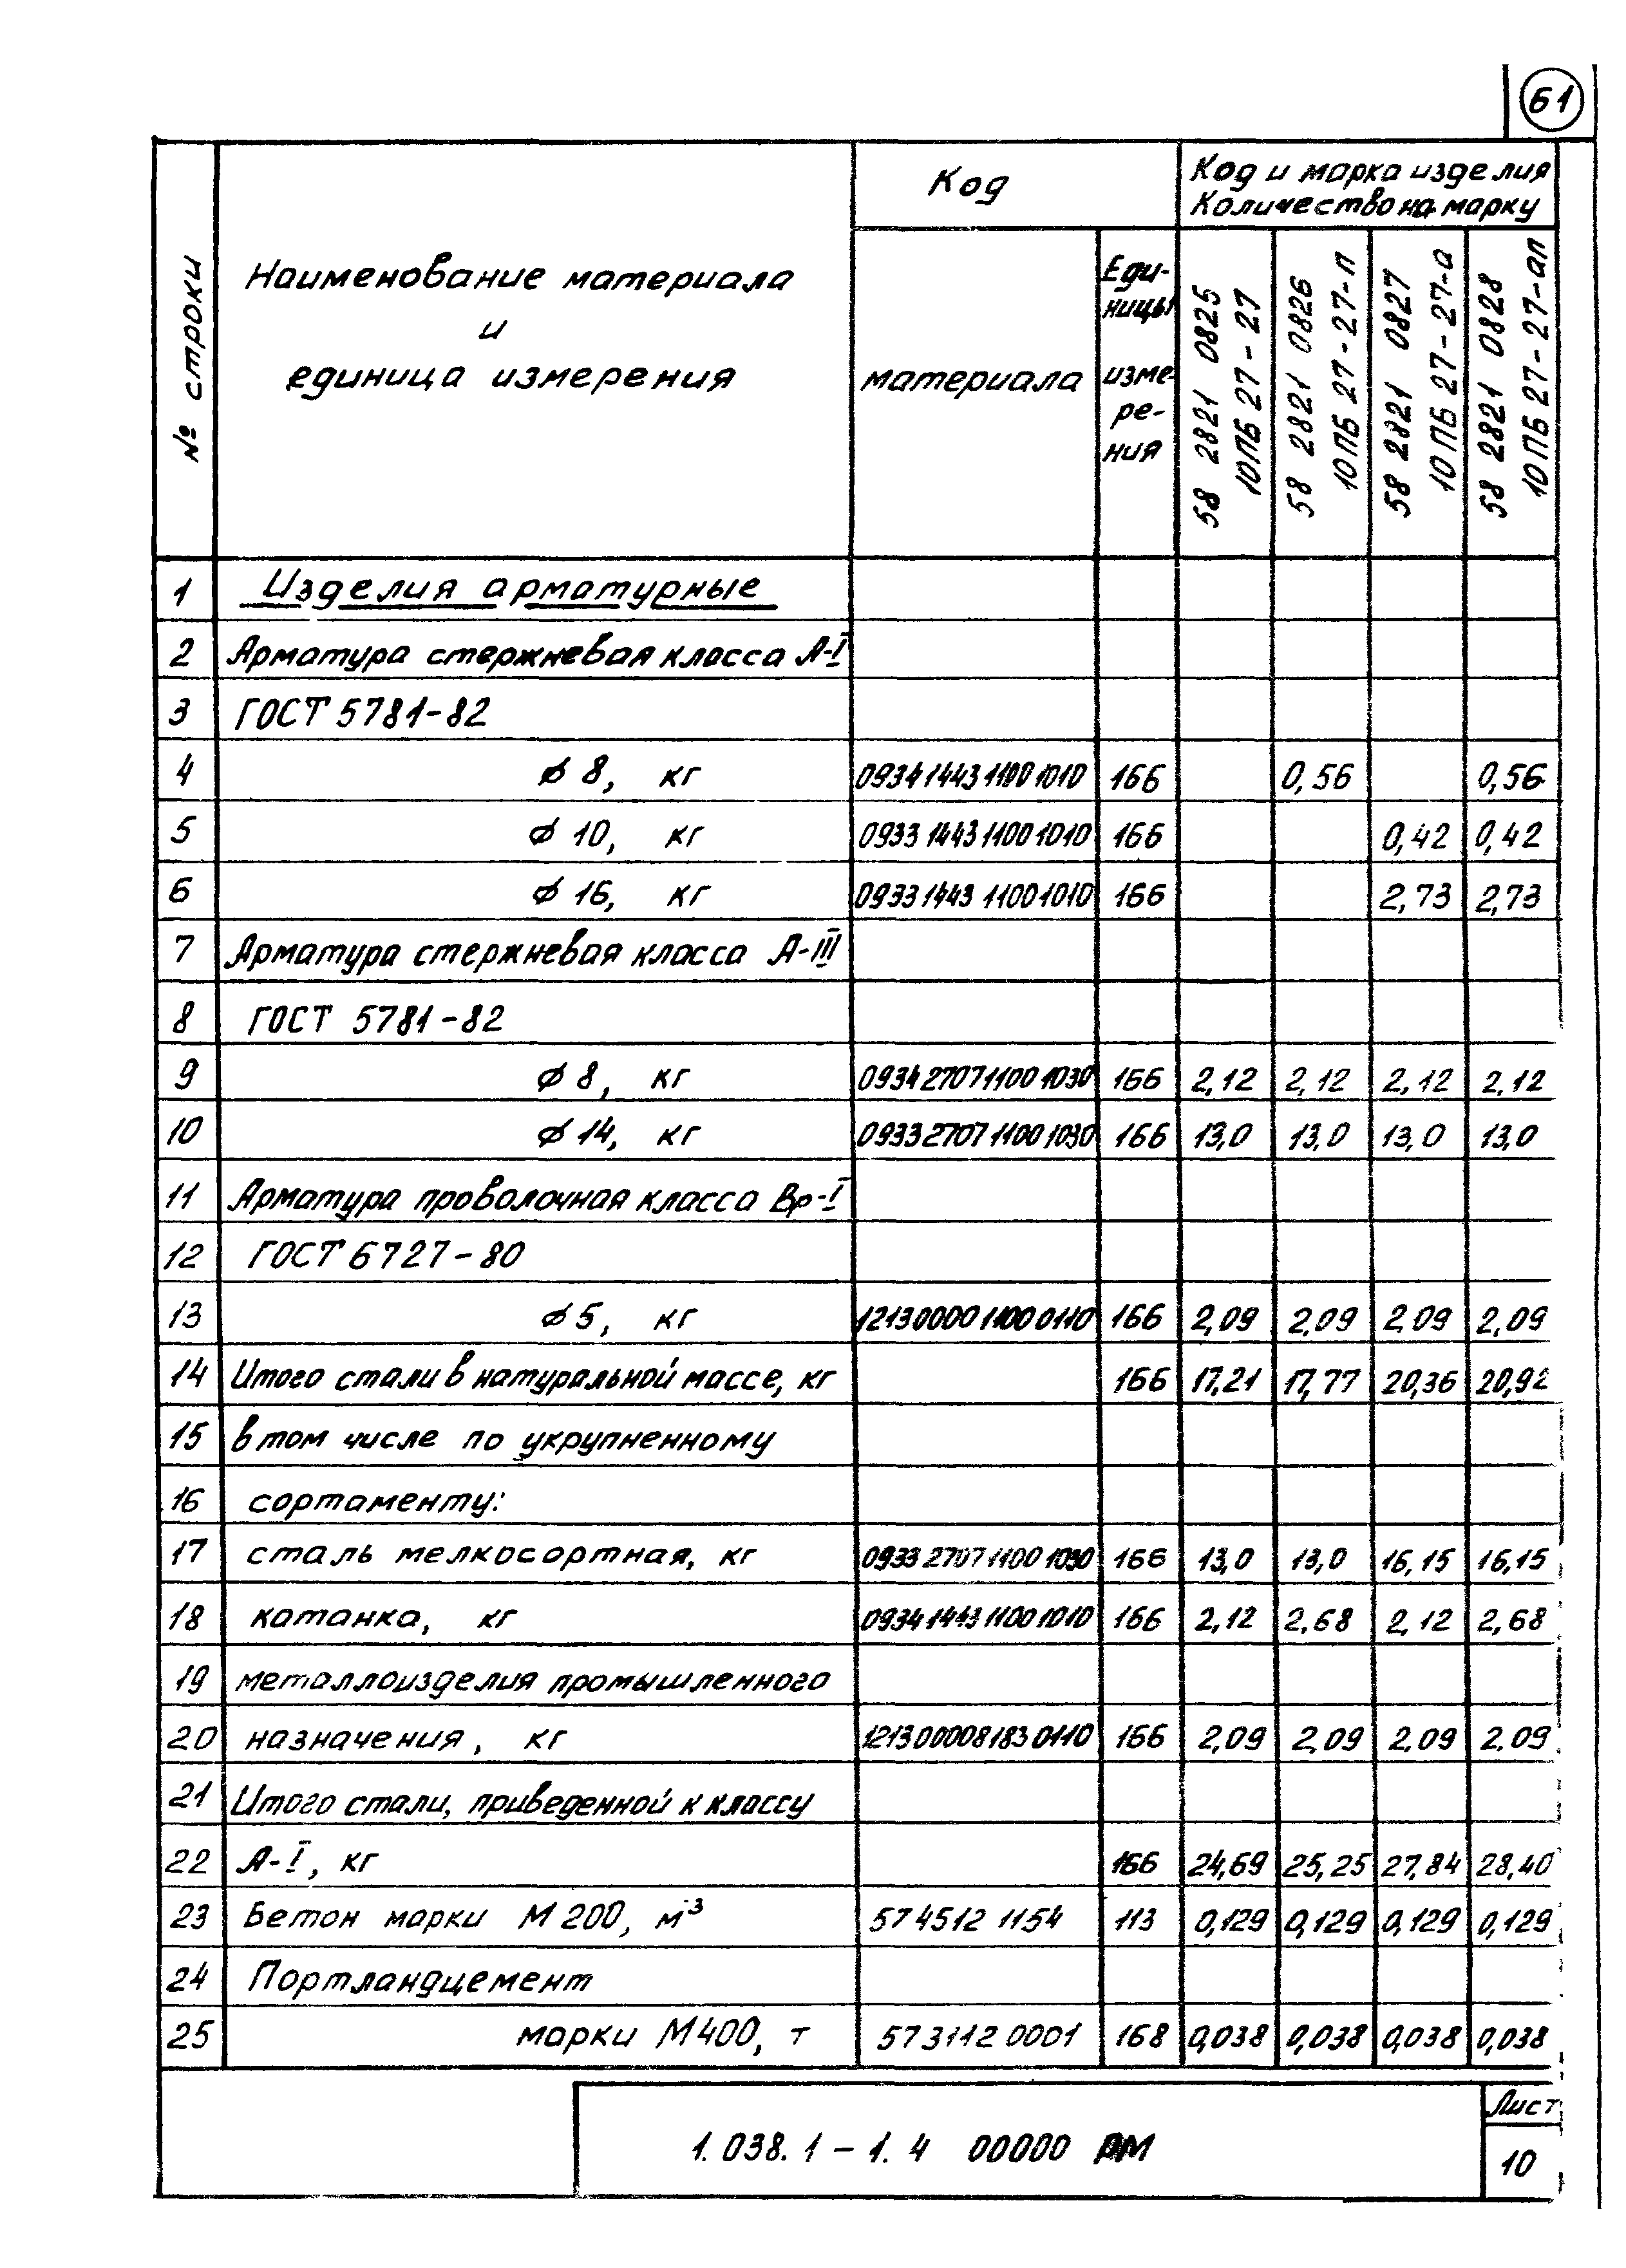 61
№ строки
Наименование материала
и
единица измерения
Код
материала
Еди-
ницы
изме-
ре-
ния
Код и марка изделия
Количество на марку
58 2821 0825
10ПБ 27-27
58 2821 0826
10ПБ 27-27-п
58 2821 0827
10ПБ 27-27-а
58 2821 0828
10ПБ 27-27-ап
1 Изделия арматурные
2 Арматура стержневая класса А-I
3 ГОСТ 5781-82
4 ⌀ 8, кг 0934 1443 1100 1010 166 0,56 0,56
5 ⌀ 10, кг 0933 1443 1100 1010 166 0,42 0,42
6 ⌀ 16, кг 0933 1443 1100 1010 166 2,73 2,73
7 Арматура стержневая класса А-III
8 ГОСТ 5781-82
9 ⌀ 8, кг 0934 2707 1100 1030 166 2,12 2,12 2,12 2,12
10 ⌀ 14, кг 0933 2707 1100 1030 166 13,0 13,0 13,0 13,0
11 Арматура проволочная класса Вр-I
12 ГОСТ 6727-80
13 ⌀ 5, кг 1213 0000 1100 0110 166 2,09 2,09 2,09 2,09
14 Итого стали в натуральной массе, кг 166 17,21 17,77 20,36 20,92
15 в том числе по укрупненному
16 сортаменту:
17 сталь мелкосортная, кг 0933 2707 1100 1030 166 13,0 13,0 16,15 16,15
18 катанка, кг 0934 1443 1100 1010 166 2,12 2,68 2,12 2,68
19 металлоизделия промышленного
20 назначения, кг 1213 0000 8183 0110 166 2,09 2,09 2,09 2,09
21 Итого стали, приведенной к классу
22 А-I, кг 166 24,69 25,25 27,84 28,40
23 Бетон марки М 200, м³ 574512 1154 113 0,129 0,129 0,129 0,129
24 Портландцемент
25 марки М400, т 573112 0001 168 0,038 0,038 0,038 0,038
1.038.1-1.4 00000 РМ
Лист
10